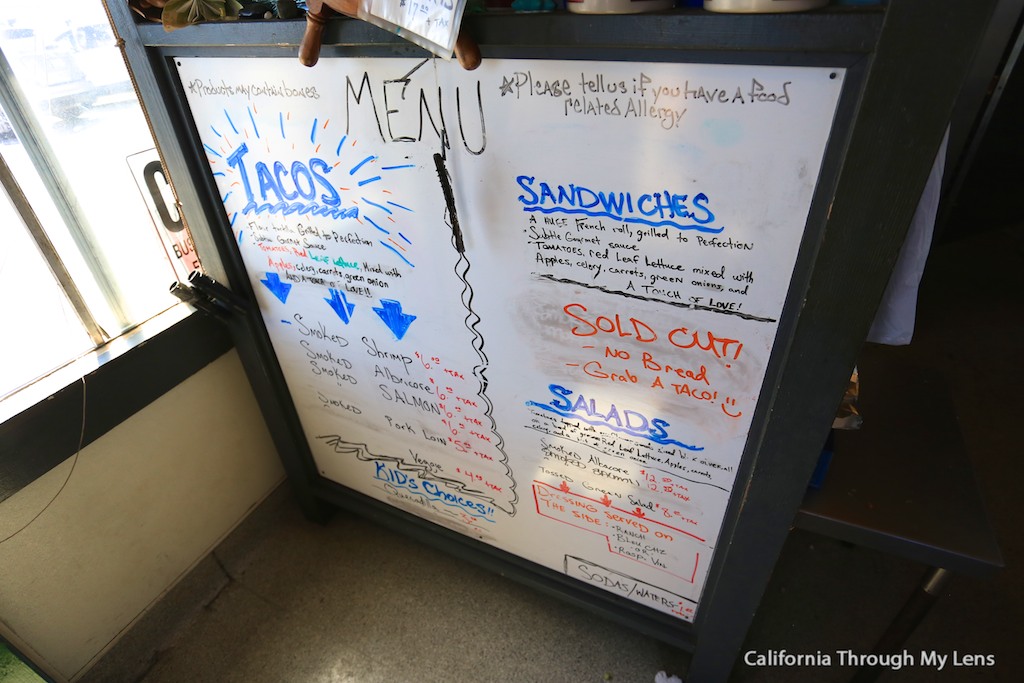 MENU
*Products may contain bones
*Please tell us if you have a food
related Allergy
TACOS
Flour tortilla Grilled to Perfection
Sauce
Tomatoes, Red Leaf Lettuce, Mixed with
Apples, celery, carrots, green onion
AND A TOUCH OF LOVE!!
Smoked Shrimp $6.00 + TAX
Smoked Albacore $6.00 + TAX
Smoked SALMON $6.00 + TAX
Smoked Pork Loin $5.50 + TAX
Veggie $4.00 + TAX
KID'S CHOICES!!
SANDWICHES
A HUGE French roll, grilled to PERFECTION
Subtle Gourmet sauce
Tomatoes, red Leaf Lettuce mixed with
Apples, celery, carrots, green onions, and
A TOUCH OF LOVE!
SOLD OUT!
- NO Bread
- Grab A TACO!
SALADS
Red Leaf Lettuce, Apples, carrots
Smoked Albacore $12.00 + TAX
12.00 + TAX
Tossed Green Salad $8.00 + TAX
DRESSING SERVED ON
THE SIDE:
RANCH
BLEU CHZ
OR
RASP. VIN
SODAS/WATERS
California Through My Lens